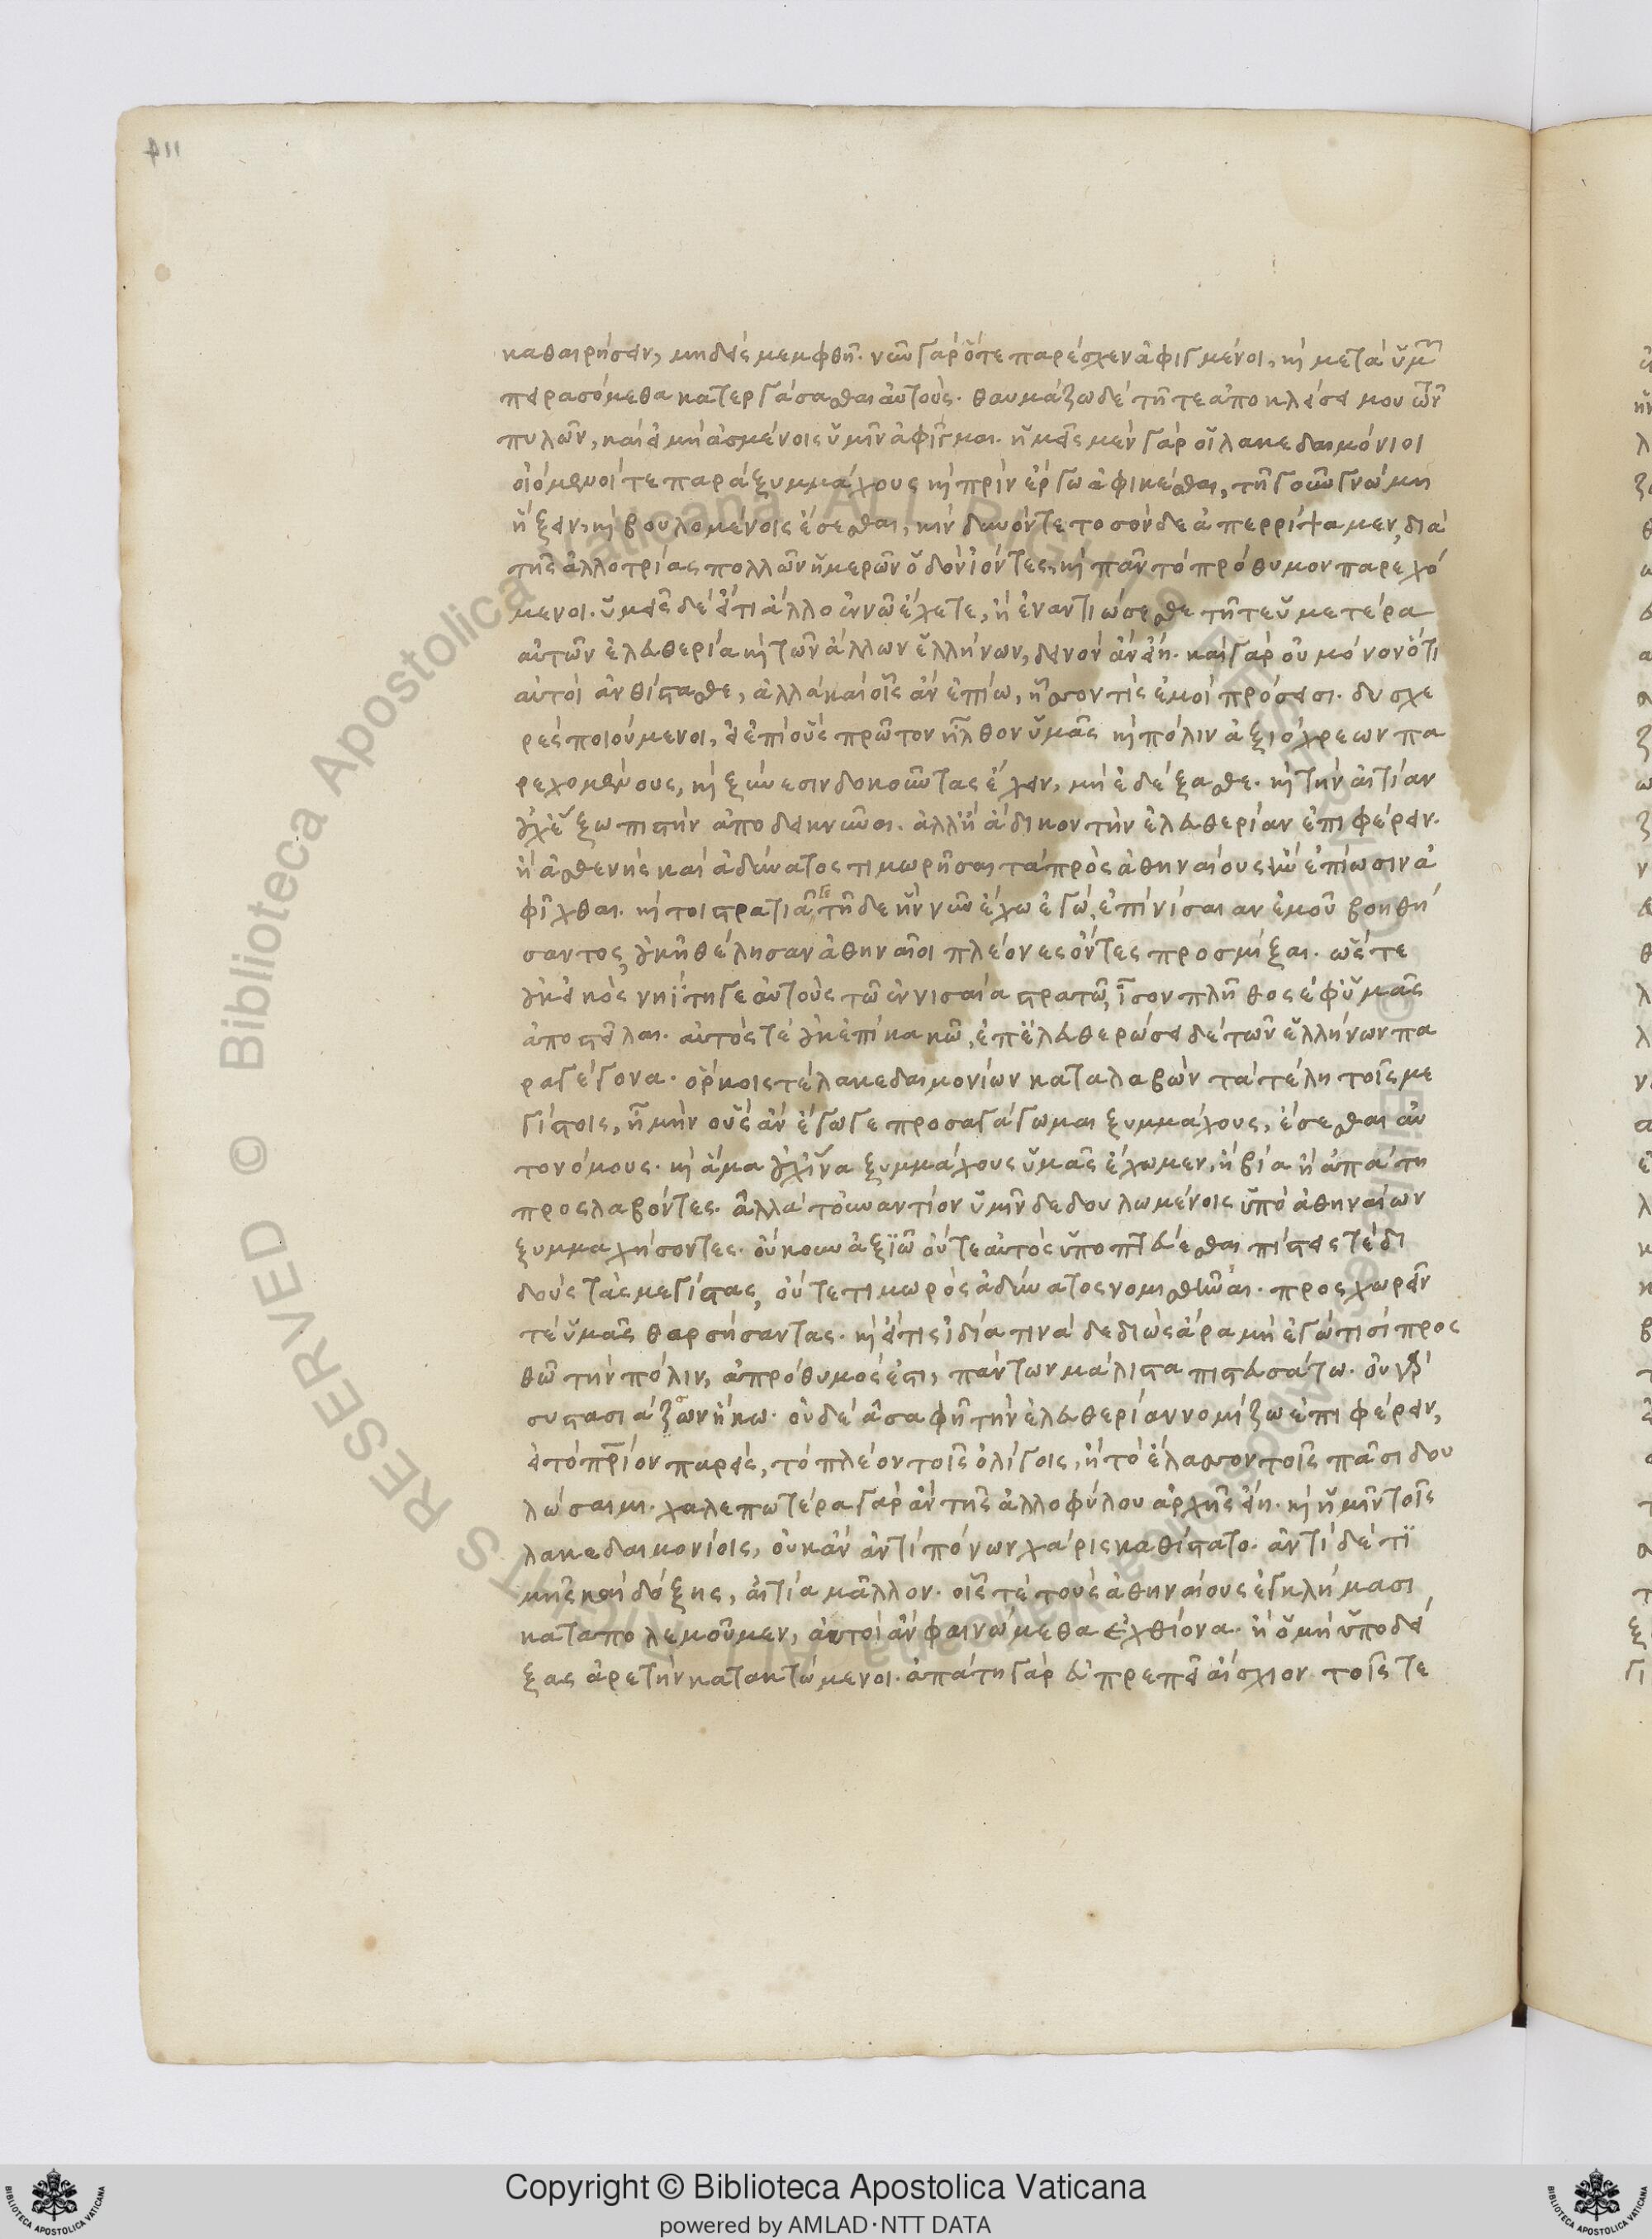 411
καθαιρήσειν, μηδεὶς μεμφθῆ· νῦν γὰρ ὅτε παρέσχεν ἀφιγμένοι, καὶ μετὰ ὑμῶν
πειρασόμεθα κατεργάσασθαι αὐτούς· θαυμάζω δὲ τῆ τε ἀποκλείσει μου τῶν
πυλῶν, καὶ εἰ μὴ ἀσμένοις ὑμῖν ἀφῖγμαι. ἡμεῖς μὲν γὰρ οἱ λακεδαιμόνιοι
οἰόμενοί τε παρὰ ξυμμάχους καὶ πρὶν ἔργω ἀφικέσθαι, τῆ γοῦν γνώμη
ἥξειν, καὶ βουλομένοις ἔσεσθαι, κίνδυνόν τε τοσόνδε ἀπερρίψαμεν, διὰ
τῆς ἀλλοτρίας πολλῶν ἡμερῶν ὁδὸν ἰόντες, καὶ πᾶν τὸ πρόθυμον παρεχό
μενοι. ὑμεῖς δὲ εἴ τι ἄλλο ἐν νῶ ἔχετε, ἢ ἐναντιώσεσθε τῆ τε ὑμετέρα
αὐτῶν ἐλευθερία καὶ τῶν ἄλλων ἑλλήνων, δεινὸν ἂν εἴη. καὶ γὰρ οὐ μόνον ὅτι
αὐτοὶ ἀνθίστασθε, ἀλλὰ καὶ οἷς ἂν ἐπίω, ἧσσόν τις ἐμοὶ πρόσεισι. δυσχε
ρὲς ποιούμενοι, εἰ ἐπὶ οὓς πρῶτον ἦλθον ὑμᾶς καὶ πόλιν ἀξιόχρεων πα
ρεχομένους, καὶ ξύνεσιν δοκοῦντας ἔχειν, μὴ ἐδέξασθε. καὶ τὴν αἰτίαν
οὐχ ἕξω πιστὴν ἀποδεικνῦναι. ἀλλ' ἢ ἄδικον τὴν ἐλευθερίαν ἐπιφέρειν.
ἢ ἀσθενὴς καὶ ἀδύνατος τιμωρῆσαι τὰ πρὸς ἀθηναίους ἢν ἐπίωσιν ἀ
φῖχθαι. καίτοι στρατιᾶ γε τῆδε ἣν νῦν ἔχω ἐγὼ, ἐπὶ νίσαιαν ἐμοῦ βοηθή
σαντος, οὐκ ἠθέλησαν ἀθηναῖοι πλέονες ὄντες προσμίξαι. ὥστε
οὐκ εἰκὸς νηΐτη γε αὐτοὺς τῶ ἐν νισαία στρατῶ, ἴσον πλῆθος ἐφ' ὑμᾶς
ἀποστεῖλαι. αὐτός τε οὐκ ἐπὶ κακῶ, ἐπ' ἐλευθερώσει δὲ τῶν ἑλλήνων πα
ραγέγονα. ὅρκοις τὲ λακεδαιμονίων καταλαβὼν τὰ τέλη τοῖς με
γίστοις, ἦ μὴν οὓς ἂν ἔγωγε προσαγάγωμαι ξυμμάχους, ἔσεσθαι αὐ
τονόμους. καὶ ἅμα οὐχ ἵνα ξυμμάχους ὑμᾶς ἔχωμεν, ἢ βία ἢ ἀπάτη
προσλαβόντες. ἀλλὰ τὸ ἐναντίον ὑμῖν δεδουλωμένοις ὑπὸ ἀθηναίων
ξυμμαχήσοντες. οὔκουν ἀξιῶ οὔτε αὐτὸς ὑποπτεύεσθαι πίστεις τὲ δι
δοὺς τὰς μεγίστας, οὔτε τιμωρὸς ἀδύνατος νομισθῆναι. προσχωρεῖν
τὲ ὑμᾶς θαρσήσαντας. καὶ εἴ τις ἰδία τινὰ δεδιὼς ἄρα μὴ ἐγὼ τισὶ προς
θῶ τὴν πόλιν, ἀπρόθυμός ἐστι, πάντων μάλιστα πιστευσάτω. οὐ γὰρ
συστασιάζων ἥκω. οὐδὲ ἀσαφῆ τὴν ἐλευθερίαν νομίζω ἐπιφέρειν,
εἰ τὸ πάτριον παρεὶς, τὸ πλέον τοῖς ὀλίγοις, ἢ τὸ ἔλασσον τοῖς πᾶσι δου
λώσαιμι. χαλεπωτέρα γὰρ ἂν τῆς ἀλλοφύλου ἀρχῆς εἴη. καὶ ἡμῖν τοῖς
λακεδαιμονίοις, οὐκ ἂν ἀντὶ πόνων χάρις καθίστατο. ἀντὶ δὲ τι
μῆς καὶ δόξης, αἰτία μᾶλλον. οἷς τὲ τοὺς ἀθηναίους ἐγκλήμασι
καταπολεμοῦμεν, αὐτοὶ ἂν φαινώμεθα ἐχθίονα. ἢ ὁ μὴ ὑποδεί
ξας ἀρετὴν κατακτώμενοι. ἀπάτη γὰρ εὐπρεπεῖ αἴσχιον τοῖς τε
Biblioteca Apostolica Vaticana
RIGHTS RESERVED ©
Copyright © Biblioteca Apostolica Vaticana
powered by AMLAD·NTT DATA
BIBLIOTECA APOSTOLICA VATICANA
BIBLIOTECA APOSTOLICA VATICANA